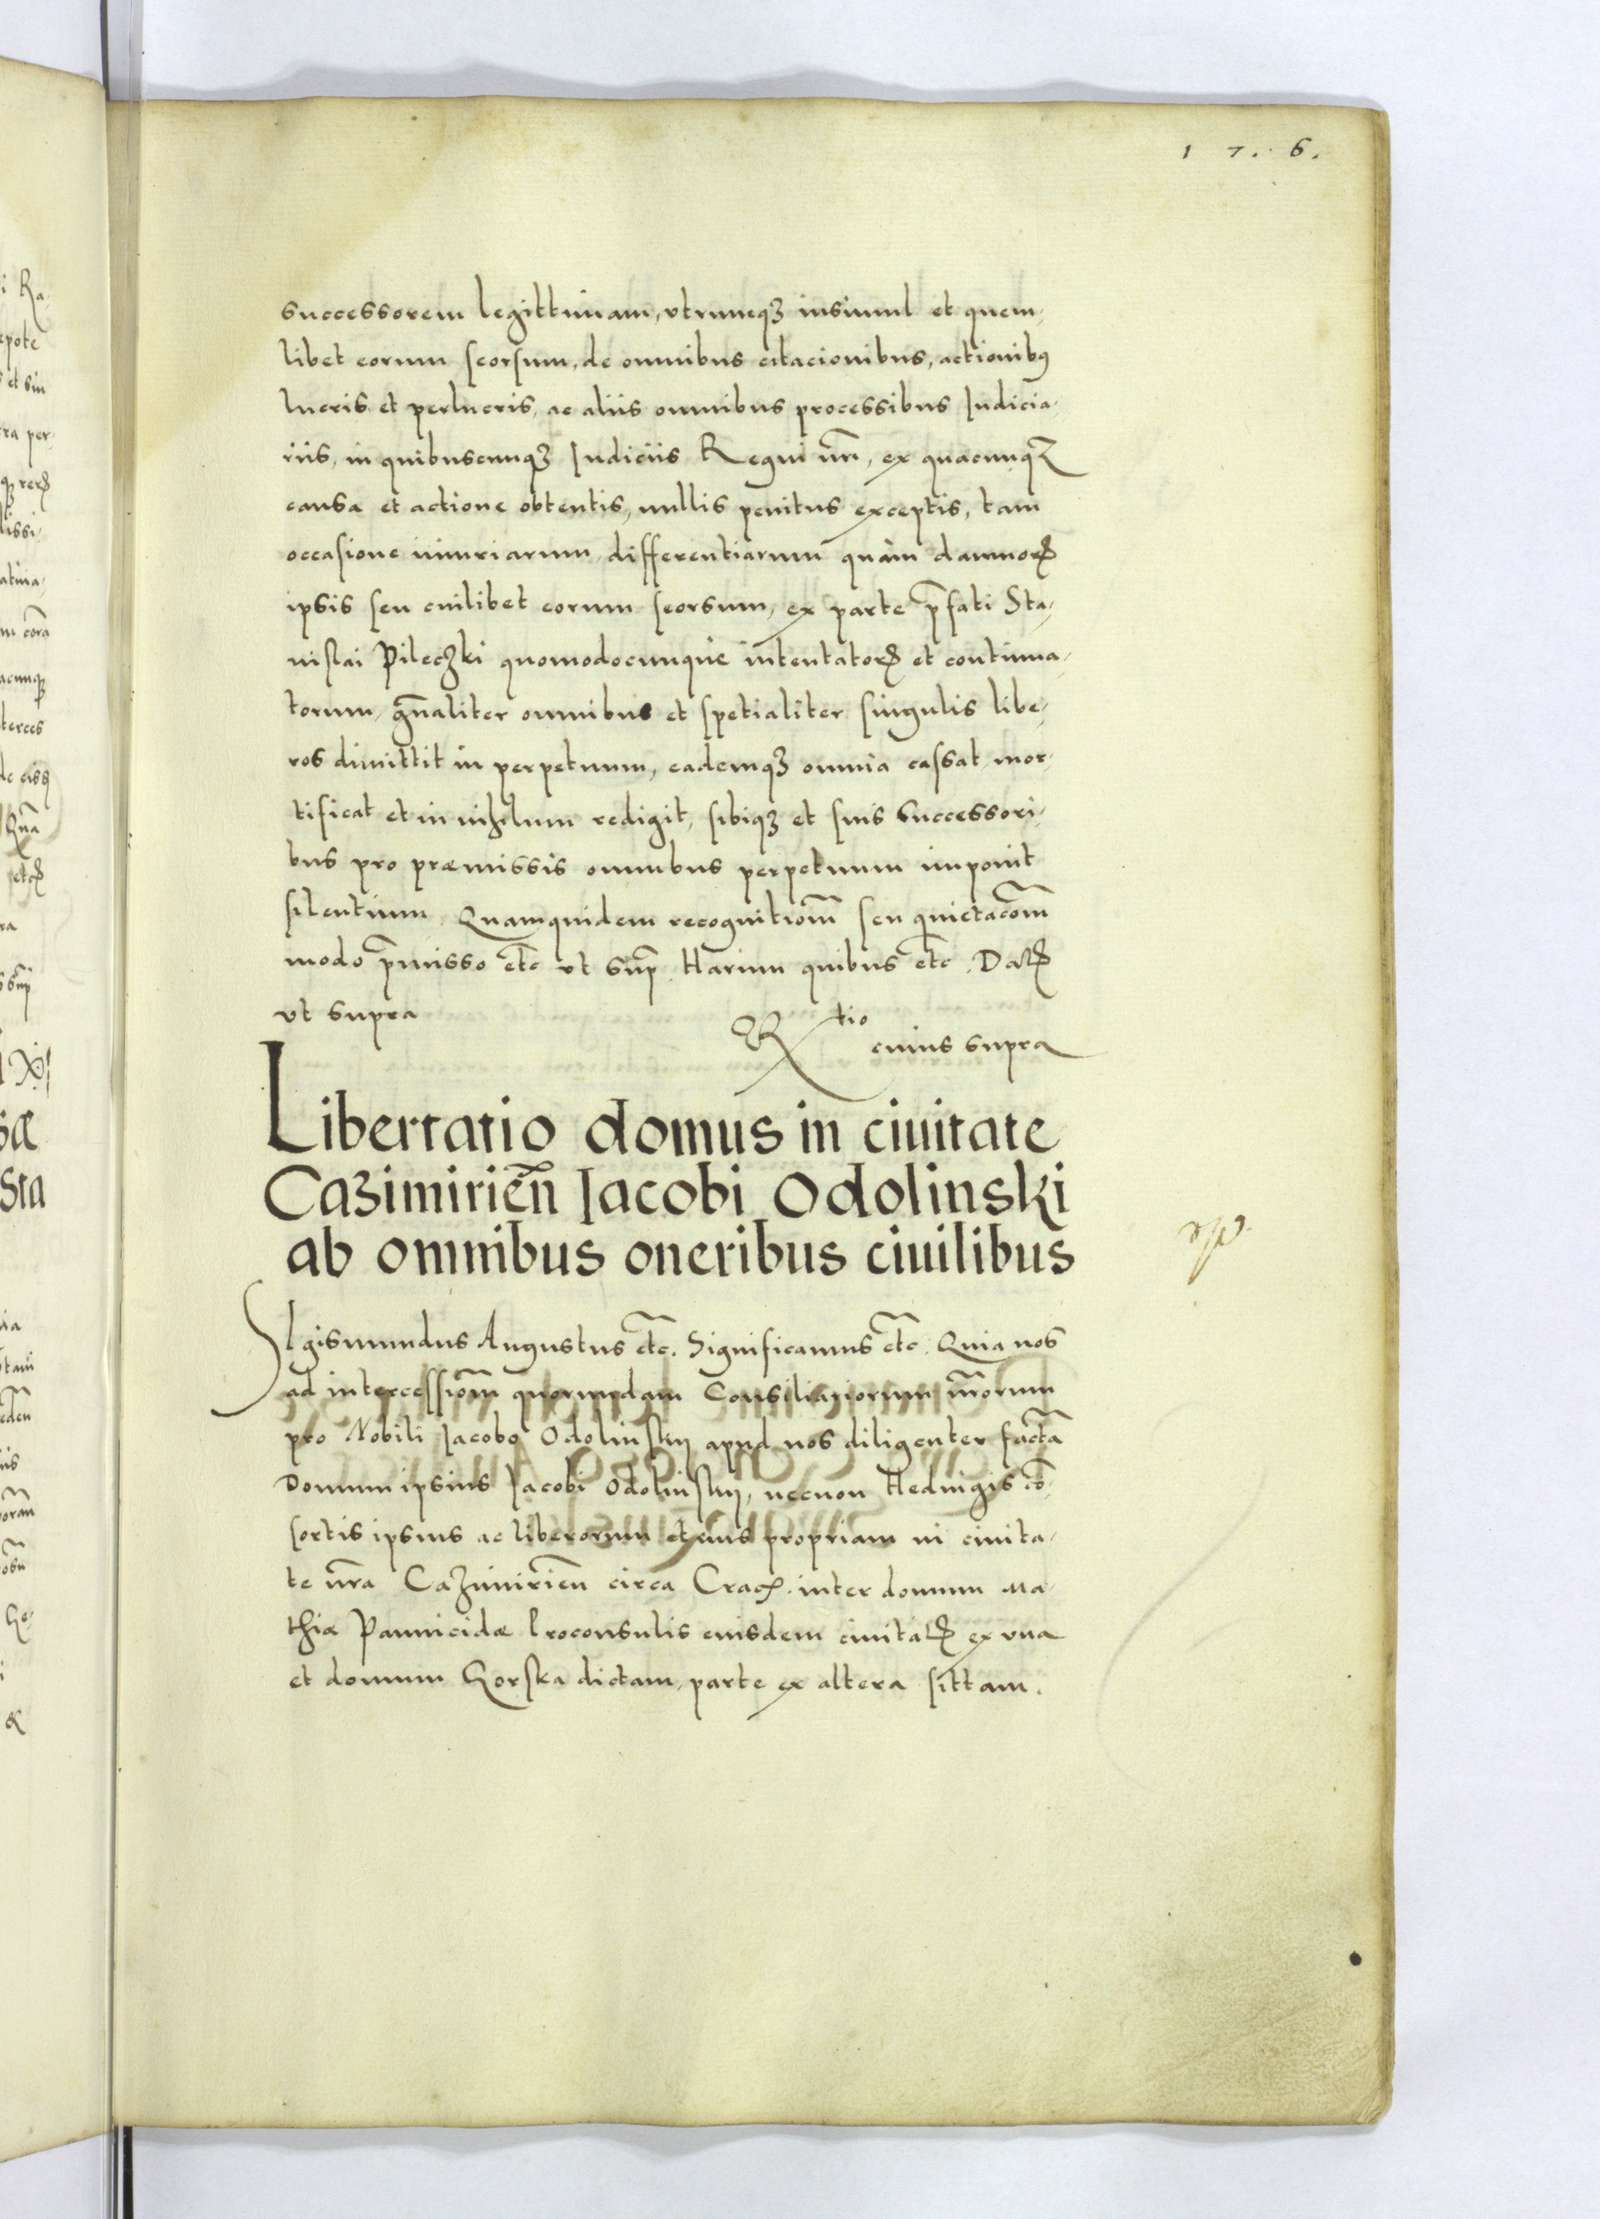 1 7. 6.
successorem legittimam, vtrumqꝫ insimul et quem-
libet eorum seorsum, de omnibus citacionibus, actionibꝯ
lucris et perlucris, ac aliis omnibus processibus Iudicia-
riis, in quibuscunqꝫ Iudiciis Regni nrī, ex quacunqꝫ
causa et actione obtentis, nullis penitus exceptis, tam
occasione iniuriarum differentiarum quàm damnorꝝ
ipsis seu cuilibet eorum seorsum, ex parte p̄fati Sta-
nislai Pileczki quomodocunque intentatorꝝ et continua-
torum, gn̄aliter omnibus et spetialiter singulis libe-
ros dimittit in perpetuum, eademqꝫ omnia cassat mor-
tificat et in nihilum redigit, sibiqꝫ et suis successori-
bus pro præmissis omnibus perpetuum imponit
silentium. Quamquidem recognitiom̄ seu quietacom̄
modo p̄misso etc̄ vt sup̄. Harum quibus etc̄. Datꝝ
vt supra
Rtio
cuius supra
Libertatio domus in ciuitate
Cazimirien̄ Iacobi Odolinski
ab omnibus oneribus ciuilibus
SIgismundus Augustus etc̄. Significamus etc̄. Quia nos
ad intercessiom̄ quorundam Consiliariorum nr̄orum
pro Nobili Iacobo Odolinskij apud nos diligenter factā
Domum ipsius Iacobi Odolinskij, necnon Hedwigis cō-
sortis ipsius ac liberorum etius propriam in ciuita-
te nr̄a Cazimirien̄ circa Cracꝝ. inter domum Ma-
thiæ Pannicidæ Proconsulis eiusdem ciuitatꝝ ex vna
et domum Gorska dictam, parte ex altera sittam.